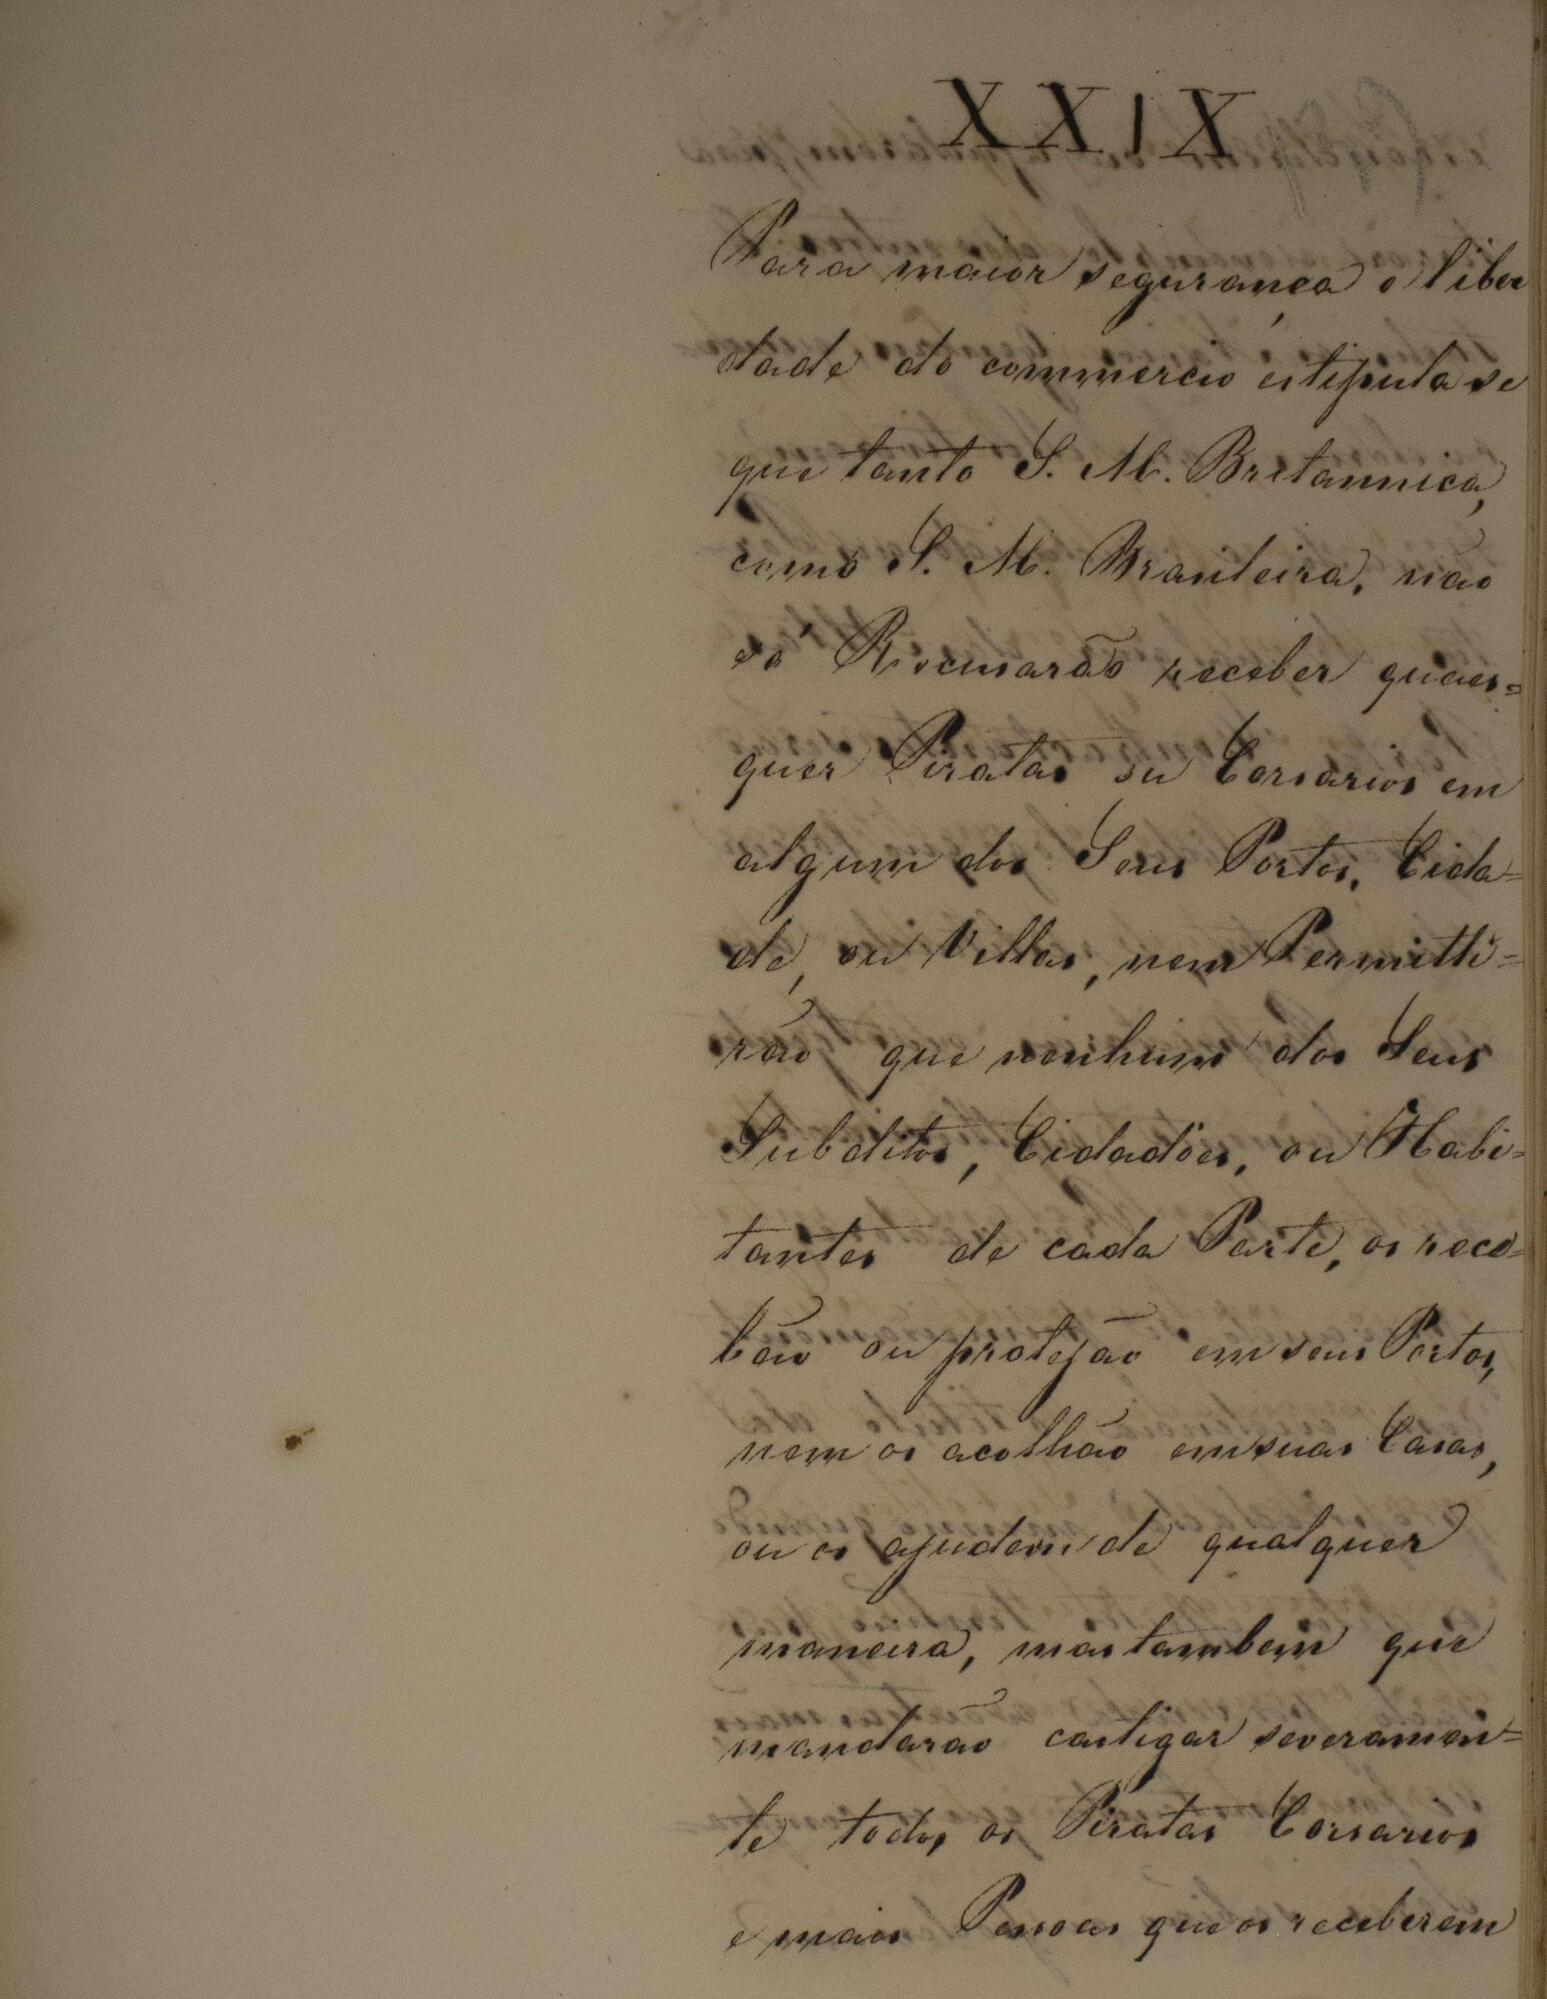 XXIX
Para maior segurança e liber
dade do commercio estipula se
que tanto S. M. Britannica,
como S. M. Brasileira, não
só Recusarão receber quaes=
quer Piratas ou Corsarios em
algum dos Seus Portos, Cida=
de, ou Villas, nem Permitti=
rão que nenhum dos Seus
Subditos, Cidadões, ou Habi=
tantes de cada Parte, os rece=
bão ou protejão em seus Portos,
nem os acolhão em suas Casas,
ou os ajudem de qualquer
maneira, mas tambem que
mandarão castigar severamen=
te todos os Piratas Corsarios
e mais Pessoas que os receberem